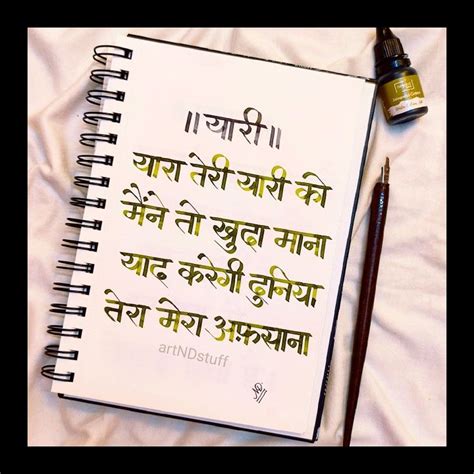 ॥यारी॥
यारा तेरी यारी को
मैंने तो खुदा माना
याद करेगी दुनिया
तेरा मेरा अफ़साना
artNDstuff